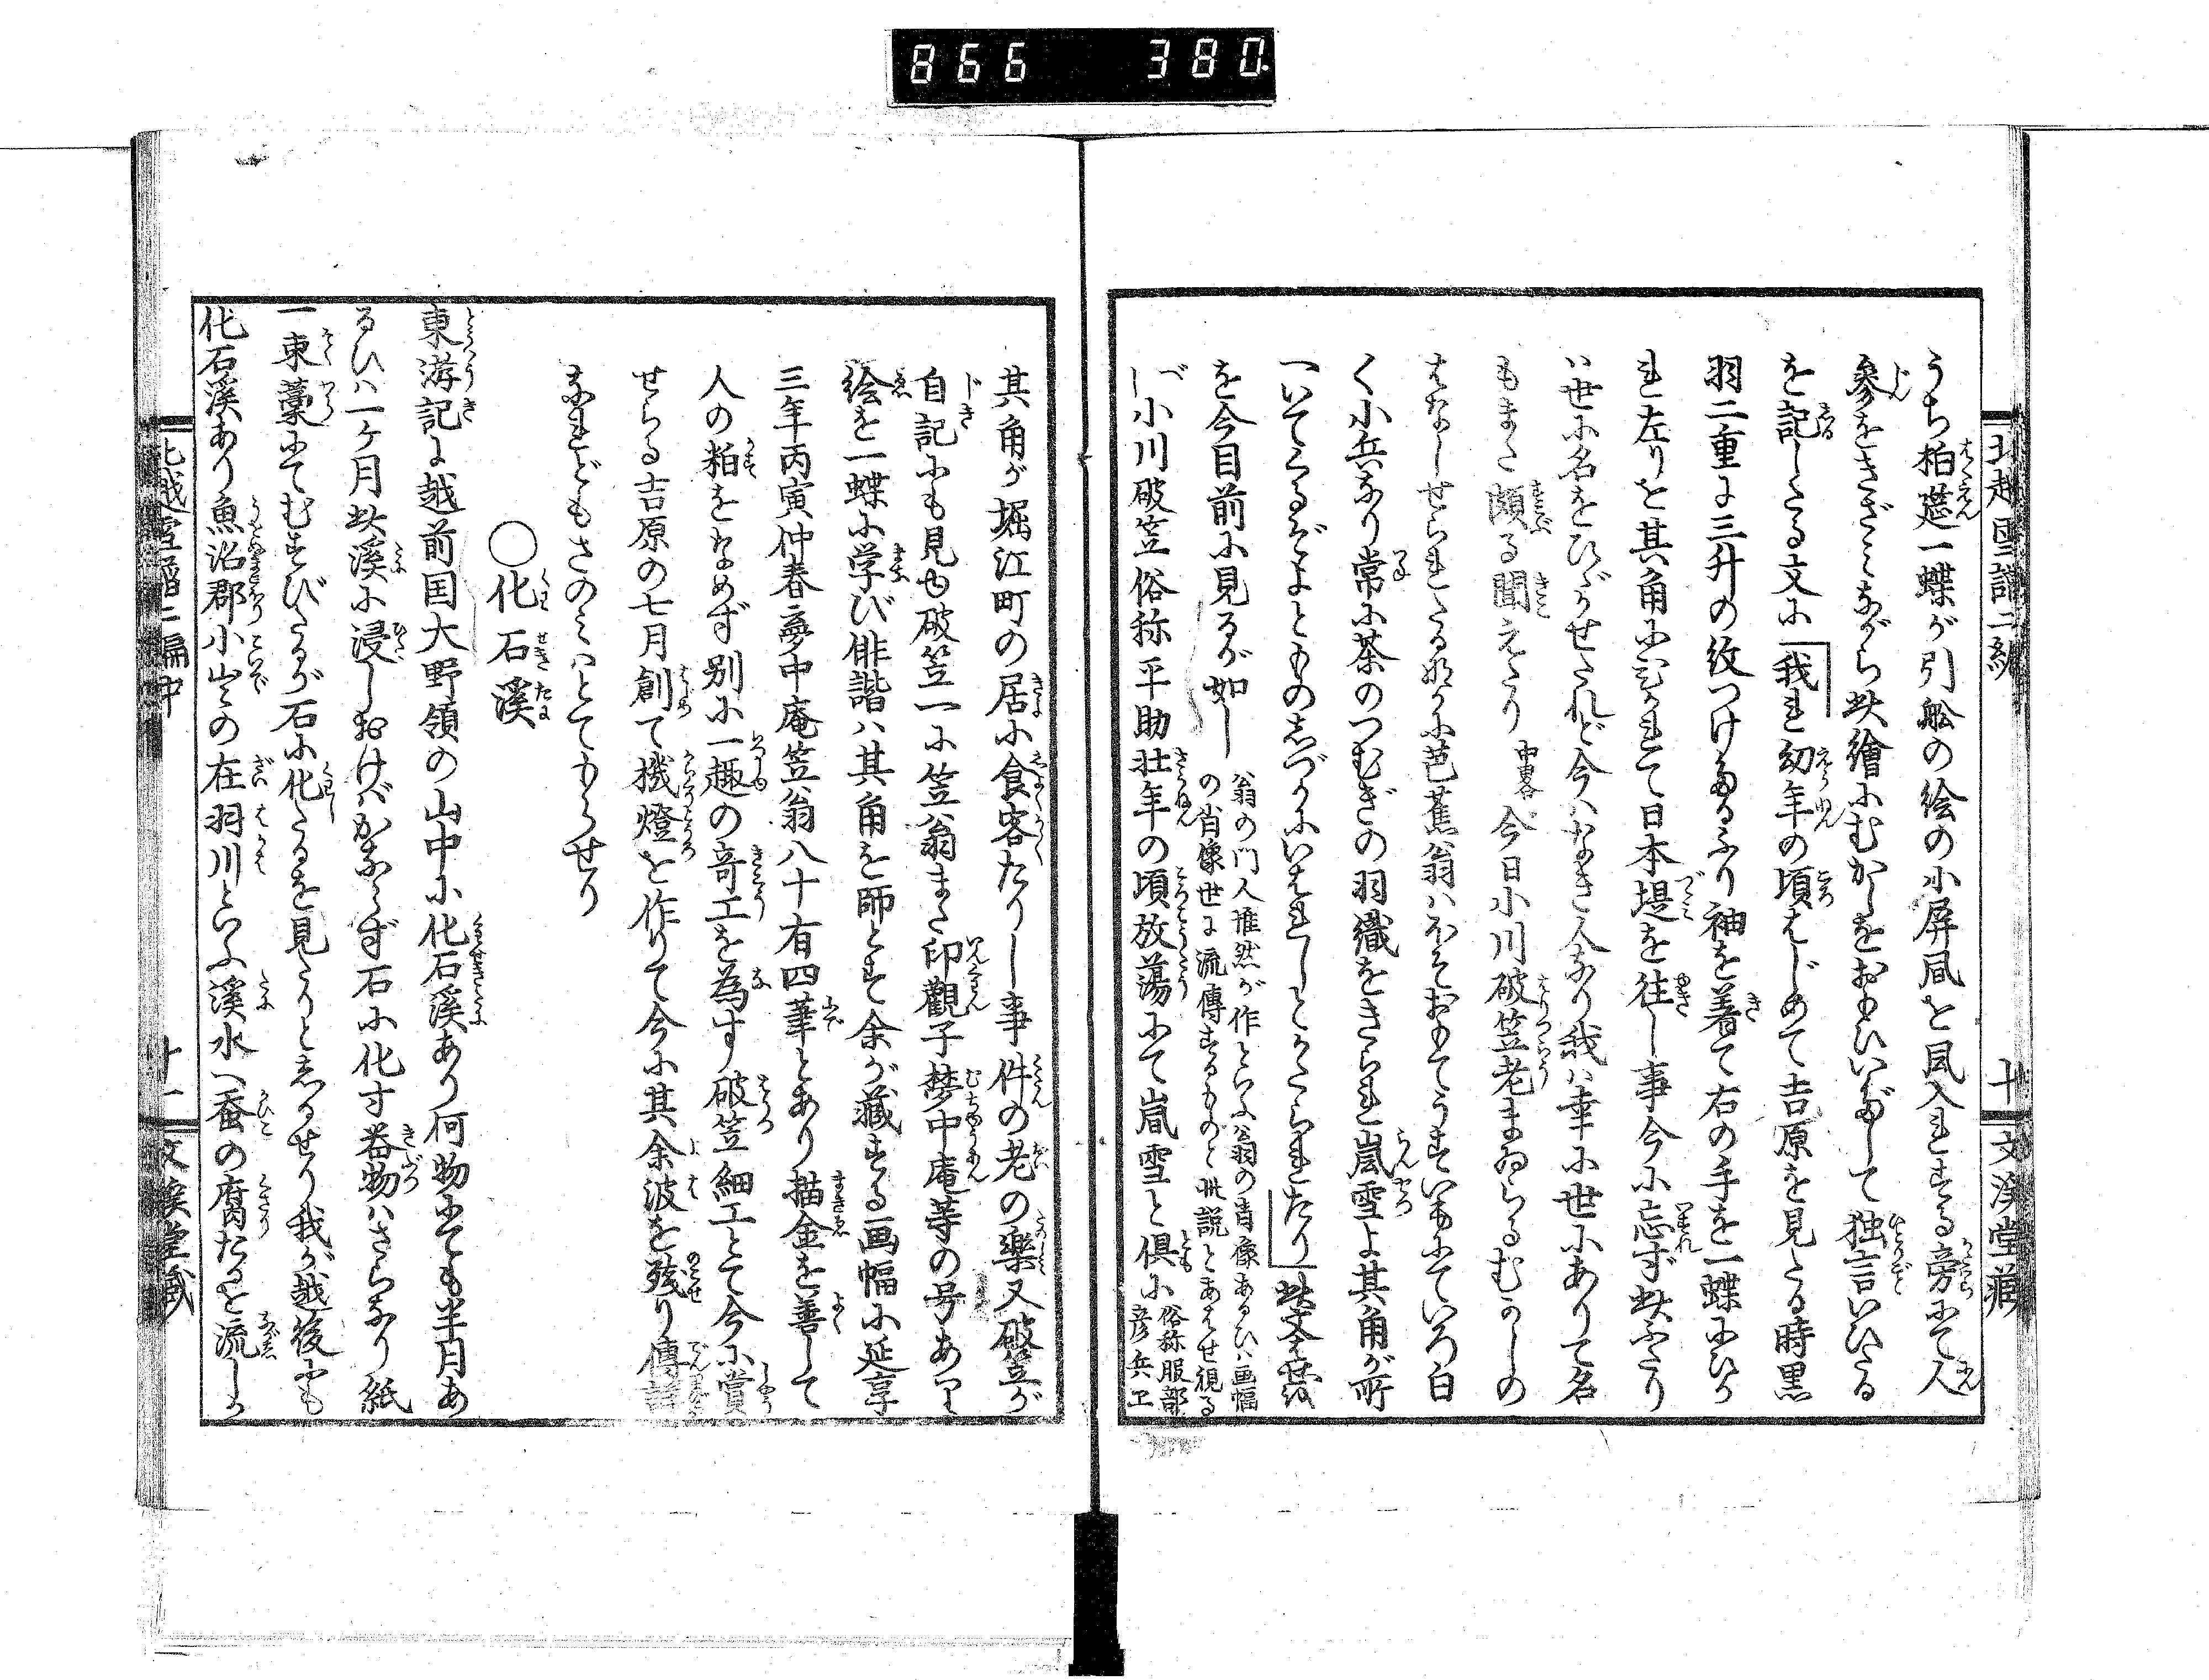 866 380
北越雪譜二編 十 文溪堂藏
うち柏莚一蝶が引舩の絵の小屏風を風入れする旁にて人
参をきざみながら此繪にむかしをおもひいだして独言いひたる
を記したる文に「我れ幼年の頃はじめて吉原を見たる時黒
羽二重に三升の紋つけたるふり袖を着て右の手を一蝶にひか
れ左りを其角にひかれて日本堤を往し事今に忘ず此ふたり
ハ世に名をひゞかせたれど今ハなき人なり我ハ幸に世にありて名
もまた頗る聞えたり 中畧 今日小川破笠老まゐらるむかしの
はなしせられたる内に芭蕉翁ハほそおもてうすいもにていろ白
く小兵なり常に茶のつむぎの羽織をきられ嵐雪よ其角が所
へいてくるぞよとものしづかにいはれしとかたられたり」此文は世俗
を今目前に見るが如し 翁の門人惟然が作といふ翁の肖像あるひハ画幅
の肖像世に流傳するものと此説とあはせ視る
べし小川破笠俗称平助壮年の頃放蕩にて嵐雪と俱に 俗称服部
彦兵エ
其角が堀江町の居に食客たりし事件の老の樂又破笠が
自記にも見ゆ破笠一に笠翁また印觀子夢中庵等の号あり
絵を一蝶に学び俳諧ハ其角を師とす余が藏する画幅に延享
三年丙寅仲春夢中庵笠翁八十有四筆とあり描金を善して
人の粕をなめず別に一趣の奇工を為す破笠細工とて今に賞
せらる吉原の七月創て機燈を作りて今に其余波を残り傳詳
なれどもさのみハとてもらせり
○化石溪
東游記に越前国大野領の山中に化石溪あり何物にても半月あ
るひハ一ケ月此溪に浸しおけバかならず石に化す器物ハさらなり紙
一束藁にてむすびたるが石に化たるを見たりとしるせり我が越後にも
化石溪あり魚沼郡小出の在羽川といふ溪水へ蚕の腐たるを流しか
北越雪譜二編中 十一 文溪堂藏